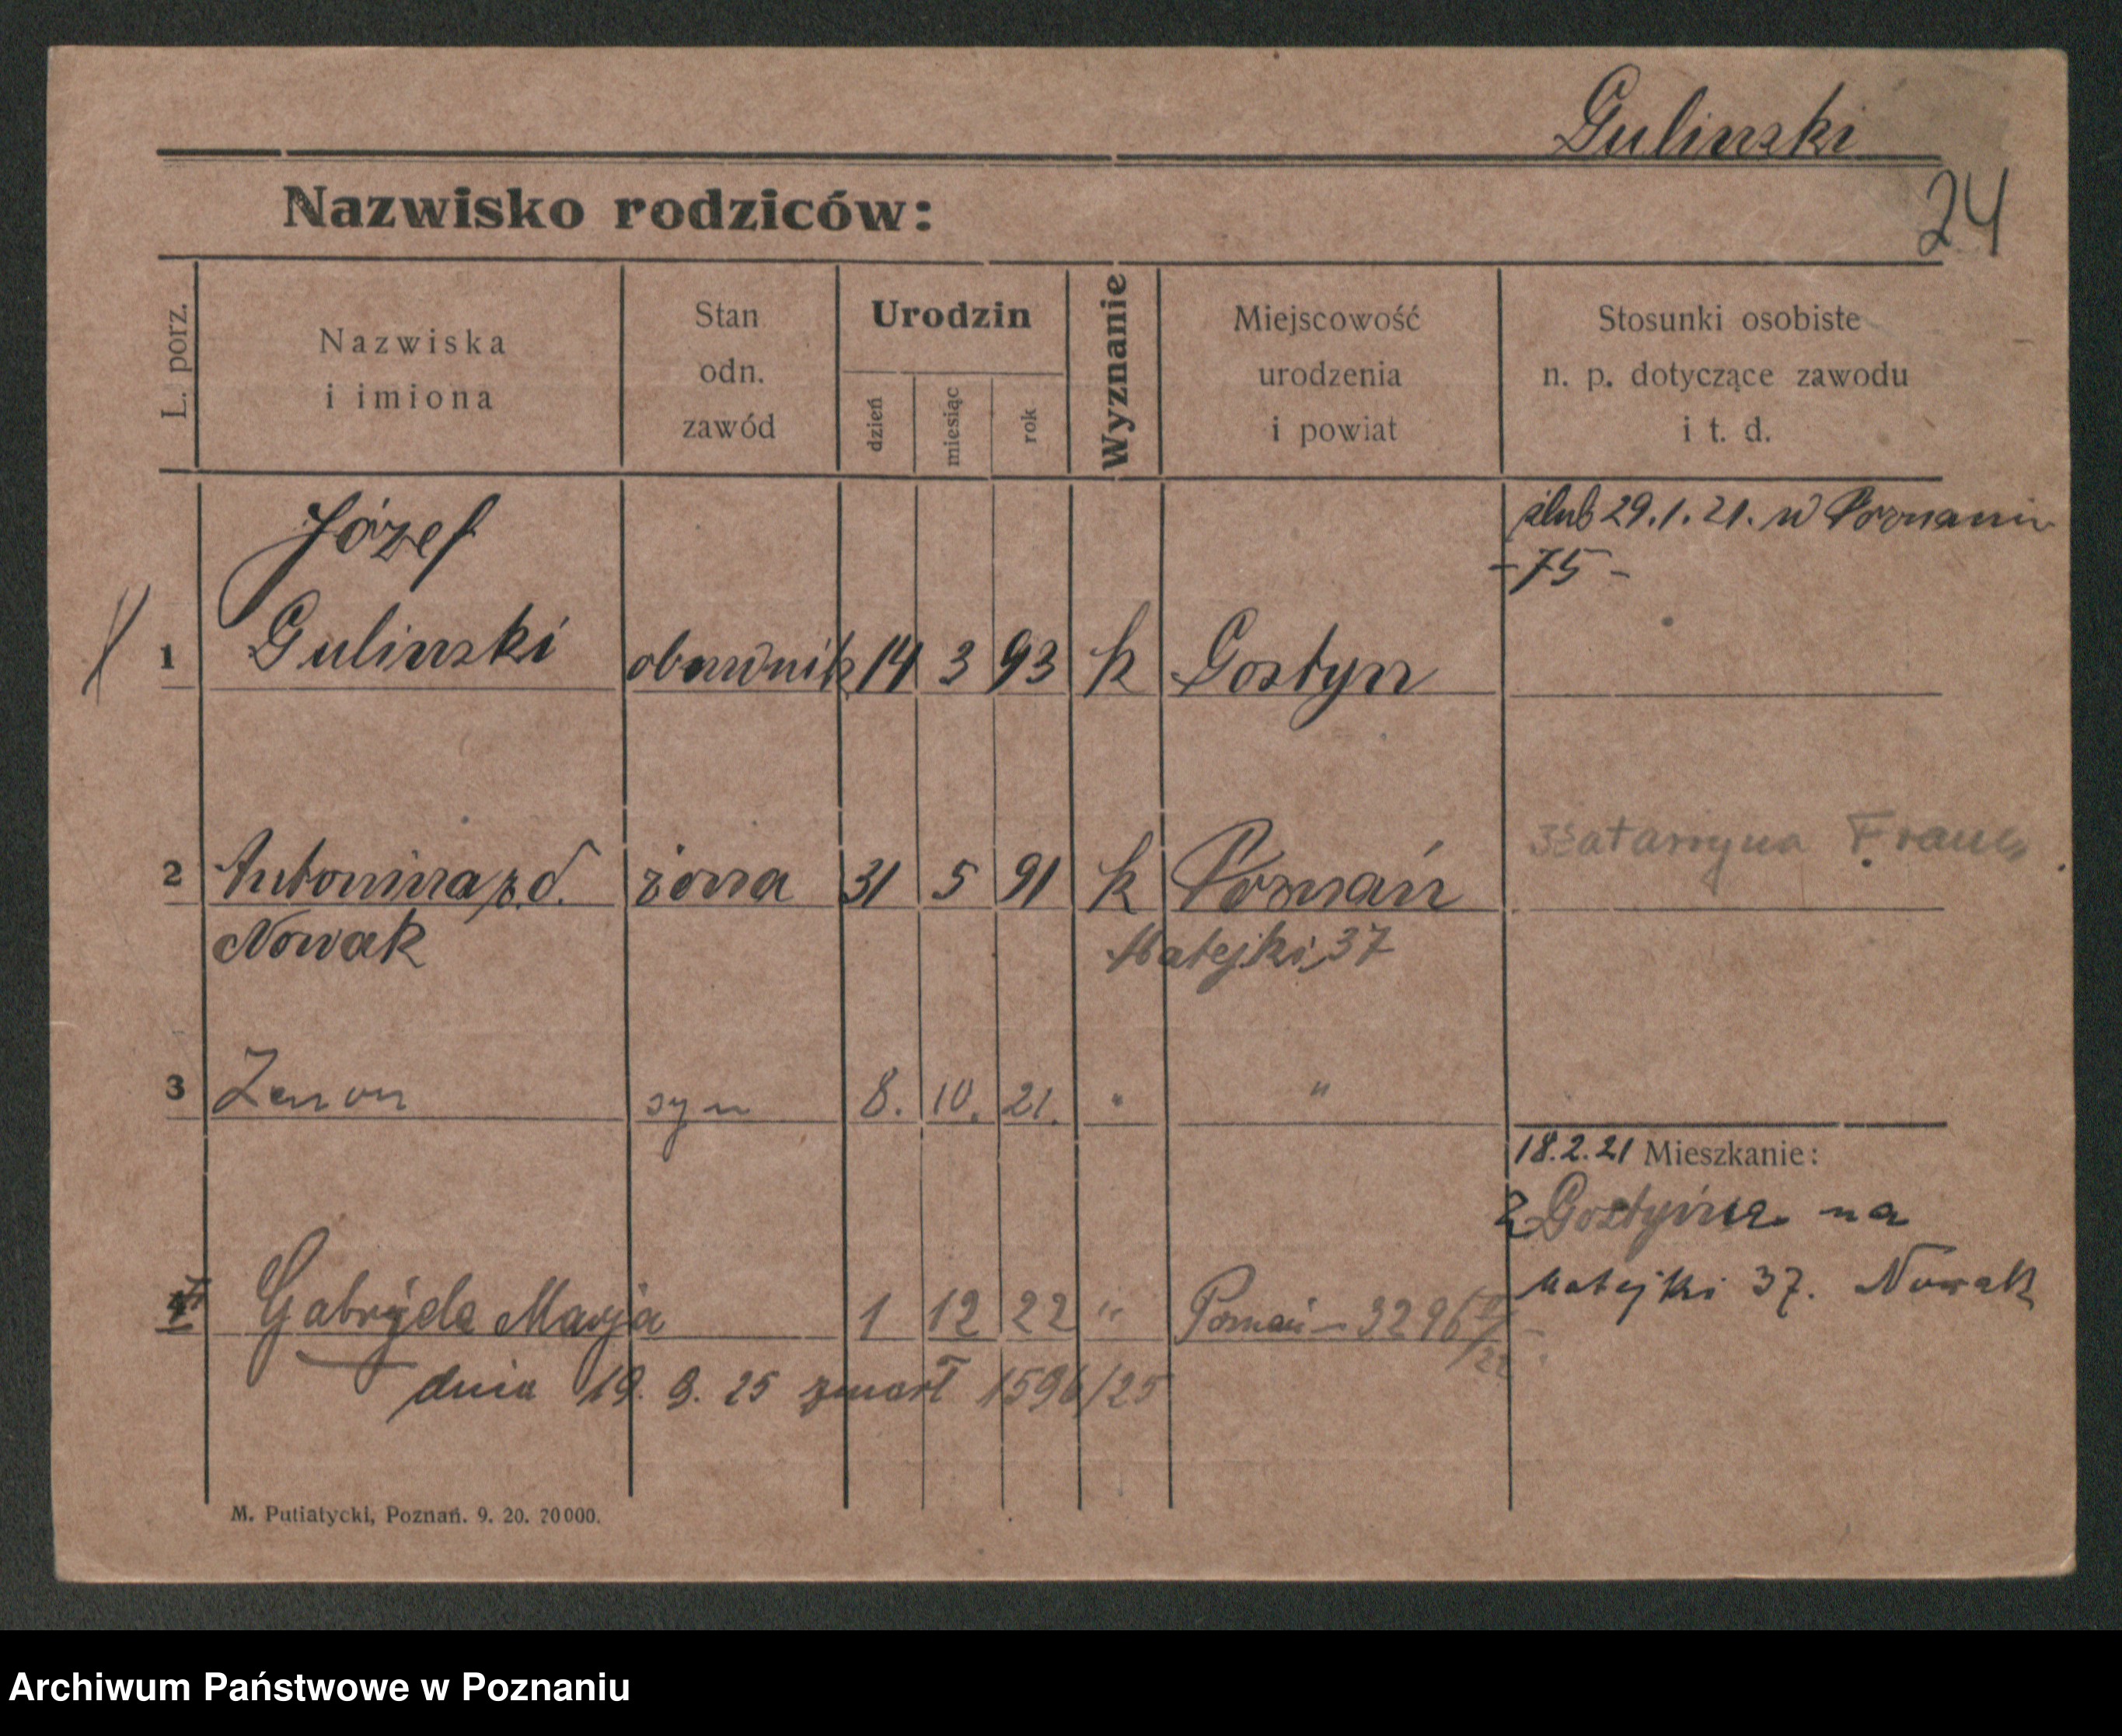 Gulinski
Nazwisko rodziców:
24
L. porz.
Nazwiska
i imiona
Stan
odn.
zawód
Urodzin
dzień
miesiąc
rok
Wyznanie
Miejscowość
urodzenia
i powiat
Stosunki osobiste
n. p. dotyczące zawodu
i t. d.
ślub 29.1.21. w Poznaniu
-75-
Józef
1 Gulinski obuwnik 14 3 93 k Gostyn
2 Antonina z.d. żona 31 5 91 k Poznań
Nowak
Matejki 37
Katarzyna
3 Zenon syn 8. 10. 21. " "
18.2.21 Mieszkanie:
z Gostynia na
Matejki 37. Nowak
4 Gabryela Marja 1 12 22 " Poznań - 3296
dnia 19. 9. 25 zmarł 1596/25
M. Putiatycki, Poznań. 9. 20. 20000.
Archiwum Państwowe w Poznaniu